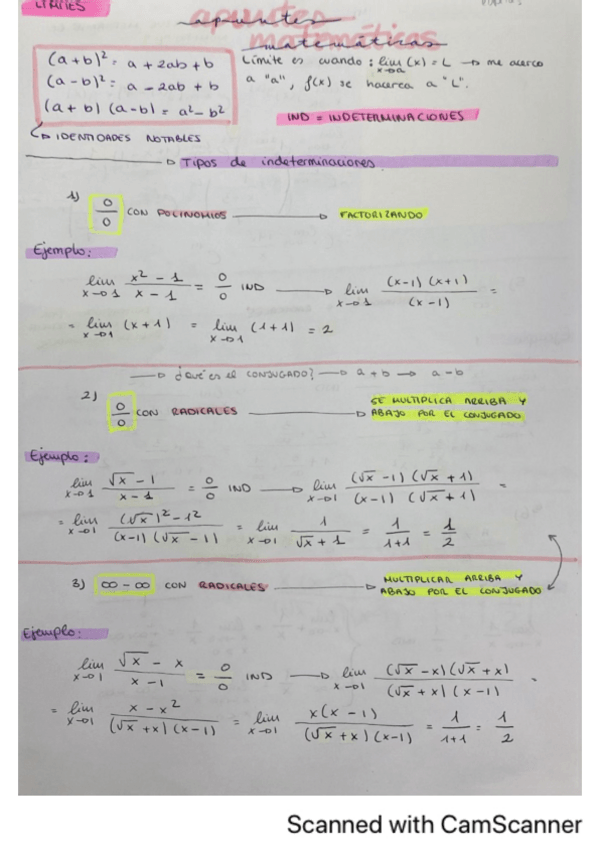 LÍMITES
apuntes
matemáticas
(a+b)² = a + 2ab + b
(a-b)² = a - 2ab + b
(a+b)(a-b) = a² - b²
→ IDENTIDADES NOTABLES
Límite es cuando: lim x→a (x) = L → me acerco
a "a", f(x) se hacerca a "L".
IND = INDETERMINACIONES
→ Tipos de indeterminaciones
1) 0/0 CON POLINOMIOS → FACTORIZANDO
Ejemplo:
lim x→1 (x² - 1)/(x - 1) = 0/0 IND → lim x→1 ((x-1)(x+1))/(x-1) =
= lim x→1 (x+1) = lim x→1 (1+1) = 2
→ ¿Qué es el CONJUGADO? → a+b → a-b
2) 0/0 CON RADICALES → SE MULTIPLICA ARRIBA Y
ABAJO POR EL CONJUGADO
Ejemplo:
lim x→1 (√x - 1)/(x - 1) = 0/0 IND → lim x→1 ((√x - 1)(√x + 1))/((x-1)(√x + 1)) =
= lim x→1 ((√x)² - 1²)/((x-1)(√x - 1)) = lim x→1 1/(√x + 1) = 1/(1+1) = 1/2
3) ∞-∞ CON RADICALES → MULTIPLICAR ARRIBA Y
ABAJO POR EL CONJUGADO
Ejemplo:
lim x→1 (√x - x)/(x - 1) = 0/0 IND → lim x→1 ((√x - x)(√x + x))/((√x + x)(x-1)) =
= lim x→1 (x - x²)/((√x + x)(x-1)) = lim x→1 (x(x-1))/((√x + x)(x-1)) = 1/(1+1) = 1/2
Scanned with CamScanner